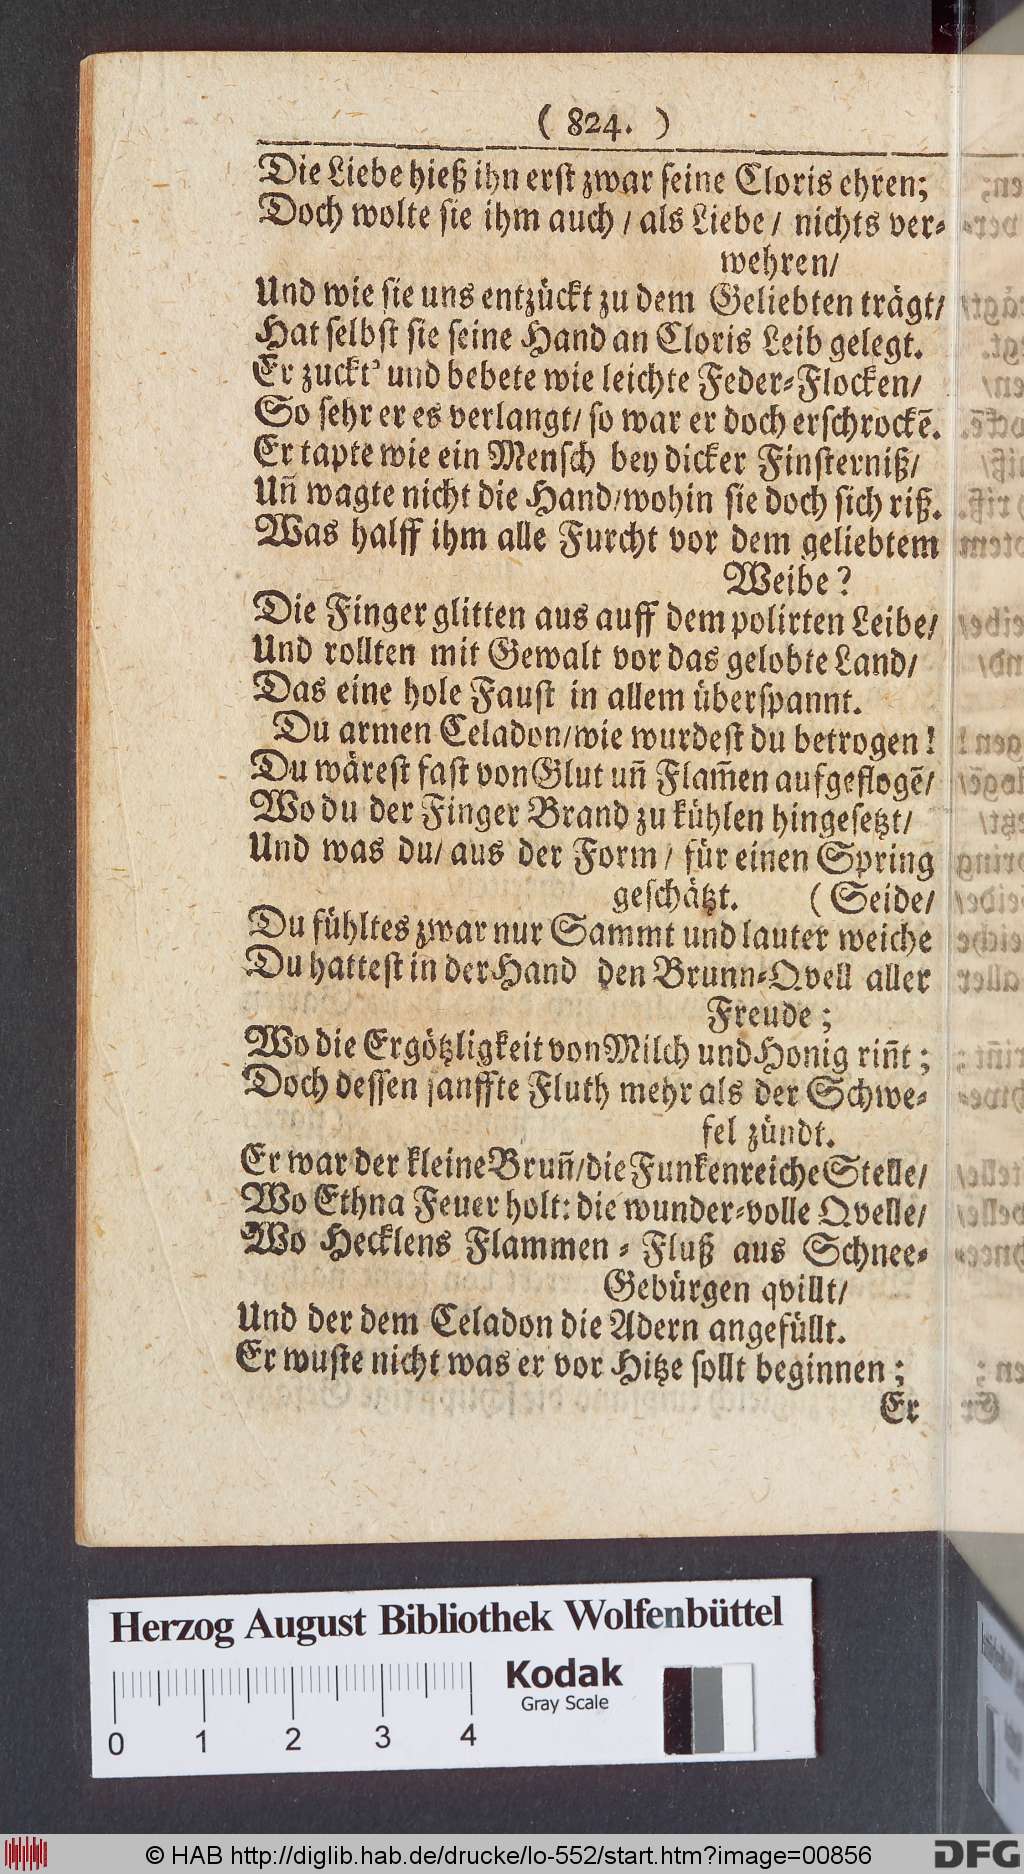 ( 824. )
Die Liebe hieß ihn erst zwar seine Cloris ehren;
Doch wolte sie ihm auch / als Liebe / nichts ver-
wehren/
Und wie sie uns entzückt zu dem Geliebten trägt/
Hat selbst sie seine Hand an Cloris Leib gelegt.
Er zuckt' und bebete wie leichte Feder-Flocken/
So sehr er es verlangt/ so war er doch erschrockē.
Er tapte wie ein Mensch bey dicker Finsterniß/
Uñ wagte nicht die Hand/wohin sie doch sich riß.
Was halff ihm alle Furcht vor dem geliebtem
Weibe?
Die Finger glitten aus auff dem polirten Leibe/
Und rollten mit Gewalt vor das gelobte Land/
Das eine hole Faust in allem überspannt.
Du armen Celadon/wie wurdest du betrogen!
Du wärest fast von Glut uñ Flam̄en aufgeflogē/
Wo du der Finger Brand zu kühlen hingesetzt/
Und was du/ aus der Form / für einen Spring
geschätzt. ( Seide/
Du fühltes zwar nur Sammt und lauter weiche
Du hattest in der Hand den Brunn-Qvell aller
Freude;
Wo die Ergötzligkeit von Milch und Honig riñt;
Doch dessen sanffte Fluth mehr als der Schwe-
fel zündt.
Er war der kleine Bruñ/die Funkenreiche Stelle/
Wo Ethna Feuer holt: die wunder-volle Qvelle/
Wo Hecklens Flammen-Fluß aus Schnee-
Gebürgen qvillt/
Und der dem Celadon die Adern angefüllt.
Er wuste nicht was er vor Hitze sollt beginnen;
Er
Herzog August Bibliothek Wolfenbüttel
Kodak
Gray Scale
0 1 2 3 4
© HAB http://diglib.hab.de/drucke/lo-552/start.htm?image=00856
DFG